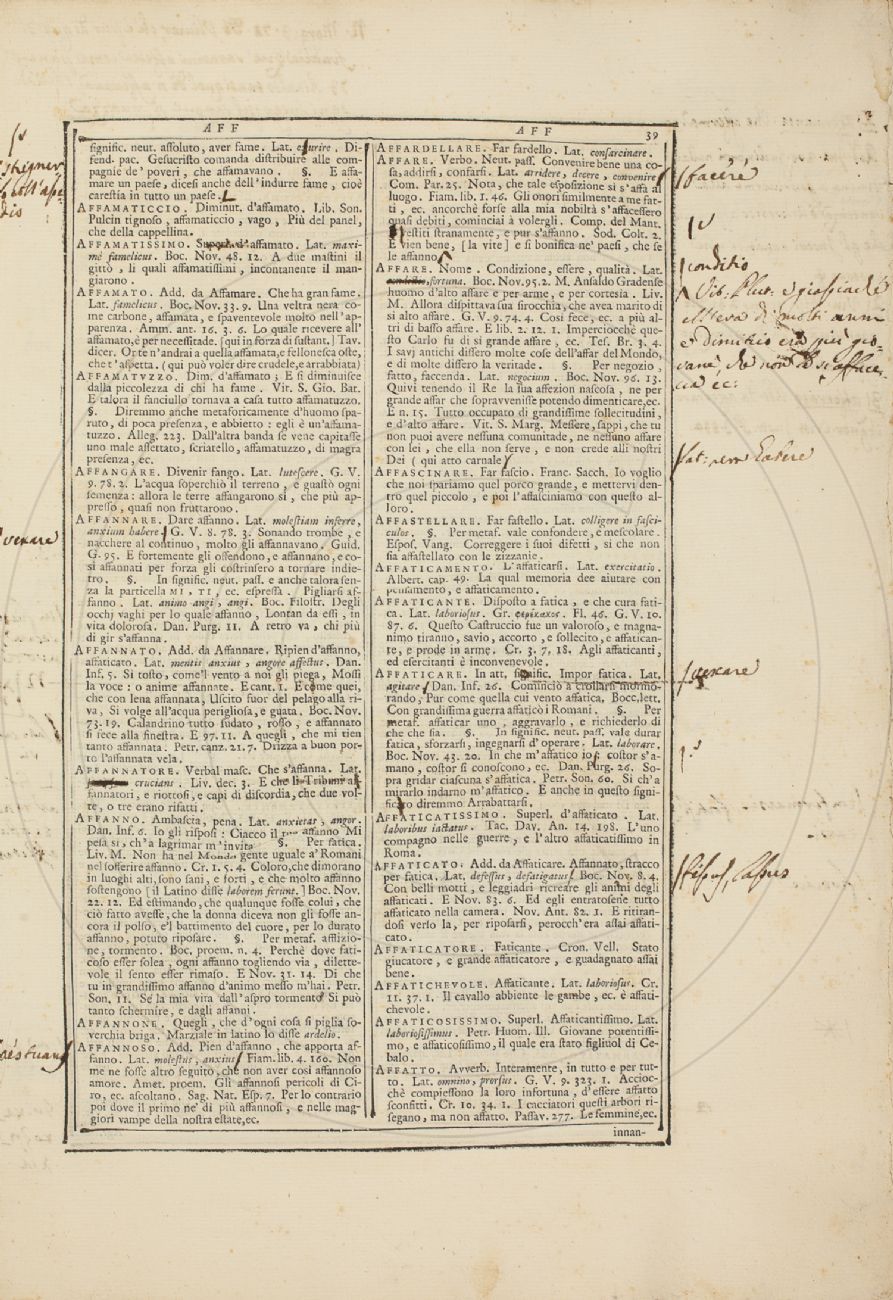 AFF
AFF
39
signific. neut. assoluto, aver fame. Lat. esurire. Di-
fend. pac. Gesucristo comanda distribuire alle com-
pagnie de' poveri, che affamavano. §. E affa-
mare un paese, dicesi anche dell'indurre fame, cioè
carestia in tutto un paese.
AFFAMATICCIO. Diminut. d'affamato. Lib. Son.
Pulcin tignoso, affamaticcio, vago, Più del panel,
che della cappellina.
AFFAMATISSIMO. Superl. d'affamato. Lat. maxi-
mè famelicus. Boc. Nov. 48. 12. A due mastini il
gittò, li quali affamatissimi, incontanente il man-
giarono.
AFFAMATO. Add. da Affamare. Che ha gran fame.
Lat. famelicus. Boc. Nov. 33. 9. Una veltra nera co-
me carbone, affamata, e spaventevole molto nell'ap-
parenza. Amm. ant. 16. 3. 6. Lo quale ricevere all'
affamato, è per necessitade. [qui in forza di sustant.] Tav.
dicer. Or te n'andrai a quella affamata, e fellonesca oste,
che t'aspetta. (qui può voler dire crudele, e arrabbiata)
AFFAMATUZZO. Dim. d'affamato; E si diminuisce
dalla piccolezza di chi ha fame. Vit. S. Gio. Bat.
E talora il fanciullo tornava a casa tutto affamatuzzo.
§. Diremmo anche metaforicamente d'huomo spa-
ruto, di poca presenza, e abbietto: egli è un'affama-
tuzzo. Alleg. 223. Dall'altra banda se vene capitasse
uno male assettato, scriatello, affamatuzzo, di magra
presenza, ec.
AFFANGARE. Divenir fango. Lat. lutescere. G. V.
9. 78. 2. L'acqua soperchiò il terreno, e guastò ogni
semenza: allora le terre affangarono sì, che più ap-
presso, quasi non fruttarono.
AFFANNARE. Dare affanno. Lat. molestiam inferre,
anxium habere. G. V. 8. 78. 3. Sonando trombe, e
nacchere al continuo, molto gli affannavano. Guid.
G. 95. E fortemente gli offendono, e affannano, e co-
sì affannati per forza gli costrinsero a tornare indie-
tro. §. In signific. neut. pass. e anche talora sen-
za la particella MI, TI, ec. espressa. Pigliarsi af-
fanno. Lat. animo angi, angi. Boc. Filostr. Degli
occhj vaghi per lo quale affanno, Lontan da essi, in
vita dolorosa. Dan. Purg. 11. A retro va, chi più
di gir s'affanna.
AFFANNATO. Add. da Affannare. Ripien d'affanno,
affaticato. Lat. mentis anxius, angore affectus. Dan.
Inf. 5. Sì tosto, come'l vento a noi gli piega, Mossi
la voce: o anime affannate. E cant. 1. E come quei,
che con lena affannata, Uscito fuor del pelago alla ri-
va, Si volge all'acqua perigliosa, e guata. Boc. Nov.
73. 19. Calandrino tutto sudato, rosso, e affannato
si fece alla finestra. E 97. 11. A quegli, che mi tien
tanto affannata. Petr. canz. 21. 7. Drizza a buon por-
to l'affannata vela.
AFFANNATORE. Verbal masc. Che s'affanna. Lat.
crucians. Liv. dec. 3. E che li Tribuni af-
fannatori, e riottosi, e capi di discordia, che due vol-
te, o tre erano rifatti.
AFFANNO. Ambascia, pena. Lat. anxietas, angor.
Dan. Inf. 6. Io gli risposi: Ciacco il tuo affanno Mi
pesa sì, ch'a lagrimar m'invita §. Per fatica.
Liv. M. Non ha nel Mondo gente uguale a' Romani
nel sofferire affanno. Cr. 1. 5. 4. Coloro, che dimorano
in luoghi alti, sono sani, e forti, e che molto affanno
sostengono [il Latino disse laborem ferunt.] Boc. Nov.
22. 12. Ed estimando, che qualunque fosse colui, che
ciò fatto avesse, che la donna diceva non gli fosse an-
cora il polso, e'l battimento del cuore, per lo durato
affanno, potuto riposare. §. Per metaf. afflizio-
ne, tormento. Boc. proem. n. 4. Perchè dove fati-
coso esser solea, ogni affanno togliendo via, dilette-
vole il sento esser rimaso. E Nov. 31. 14. Di che
tu in grandissimo affanno d'animo messo m'hai. Petr.
Son. 11. Se la mia vita dall'aspro tormento Si può
tanto schermire, e dagli affanni.
AFFANNONE. Quegli, che d'ogni cosa si piglia so-
verchia briga. Marziale in latino lo disse ardelio.
AFFANNOSO. Add. Pien d'affanno, che apporta af-
fanno. Lat. molestus, anxius. Fiam. lib. 4. 160. Non
me ne fosse altro seguito, che non aver così affannoso
amore. Amet. proem. Gli affannosi pericoli di Ci-
ro, ec. ascoltano. Sag. Nat. Esp. 7. Per lo contrario
poi dove il primo ne' dì più affannosi, e nelle mag-
giori vampe della nostra estate, ec.
AFFARDELLARE. Far fardello. Lat. consarcinare.
AFFARE. Verbo. Neut. pass. Convenire bene una co-
sa, addirsi, confarsi. Lat. arridere, decere, convenire
Com. Par. 25. Nota, che tale esposizione si s'affà al
luogo. Fiam. lib. 1. 46. Gli onori similmente a me fat-
ti, ec. ancorchè forse alla mia nobiltà s'affacessero
quasi debiti, cominciai a volergli. Comp. del Mant.
Vestiti stranamente, e pur s'affanno. Sod. Colt. 2.
E vien bene, [la vite] e si bonifica ne' paesi, che se
le affanno.
AFFARE. Nome. Condizione, essere, qualità. Lat.
fortuna. Boc. Nov. 95. 2. M. Ansaldo Gradense
huomo d'alto affare e per arme, e per cortesia. Liv.
M. Allora dispittava sua sirocchia, che avea marito di
sì alto affare. G. V. 9. 74. 4. Così fece, ec. a più al-
tri di basso affare. E lib. 2. 12. 1. Imperciocchè que-
sto Carlo fu di sì grande affare, ec. Tes. Br. 3. 4.
I savj antichi dissero molte cose dell'affar del Mondo,
e di molte dissero la veritade. §. Per negozio,
fatto, faccenda. Lat. negocium. Boc. Nov. 96. 13.
Quivi tenendo il Re la sua affezion nascosa, ne per
grande affar che sopravvenisse potendo dimenticare, ec.
E n. 15. Tutto occupato di grandissime sollecitudini,
e d'alto affare. Vit. S. Marg. Messere, sappi, che tu
non puoi avere nessuna comunitade, ne nessuno affare
con lei, che ella non serve, e non crede alli nostri
Dei (qui atto carnale
AFFASCINARE. Far fascio. Franc. Sacch. Io voglio
che noi spariamo quel porco grande, e mettervi den-
tro quel piccolo, e poi l'affasciniamo con questo al-
loro.
AFFASTELLARE. Far fastello. Lat. colligere in fasci-
culos. §. Per metaf. vale confondere, e mescolare.
Espos. Vang. Correggere i suoi difetti, sì che non
sia affastellato con le zizzanie.
AFFATICAMENTO. L'affaticarsi. Lat. exercitatio.
Albert. cap. 49. La qual memoria dee aiutare con
pensamento, e affaticamento.
AFFATICANTE. Disposto a fatica, e che cura fati-
ca. Lat. laboriosus. Gr. Fl. 46. G. V. 10.
87. 6. Questo Castruccio fue un valoroso, e magna-
nimo tiranno, savio, accorto, e sollecito, e affatican-
te, e prode in arme. Cr. 3. 7. 18. Agli affaticanti,
ed esercitanti è inconvenevole.
AFFATICARE. In att. signific. Impor fatica. Lat.
agitare. Dan. Inf. 26. Cominciò a crollarsi mormo-
rando, Pur come quella cui vento affatica. Bocc. lett.
Con grandissima guerra affaticò i Romani. §. Per
metaf. affaticar uno, aggravarlo, e richiederlo di
che che sia. §. In signific. neut. pass. vale durar
fatica, sforzarsi, ingegnarsi d'operare. Lat. laborare.
Boc. Nov. 43. 20. In che m'affatico io; costor s'a-
mano, costor si conoscono, ec. Dan. Purg. 26. So-
pra gridar ciascuna s'affatica. Petr. Son. 60. Sì ch'a
mirarlo indarno m'affatico. E anche in questo signi-
fic. diremmo Arrabattarsi.
AFFATICATISSIMO. Superl. d'affaticato. Lat.
laboribus iactatus. Tac. Dav. An. 14. 198. L'uno
compagno nelle guerre, e l'altro affaticatissimo in
Roma.
AFFATICATO. Add. da Affaticare. Affannato, stracco
per fatica. Lat. defessus, defatigatus. Boc. Nov. 8. 4.
Con belli motti, e leggiadri ricreare gli animi degli
affaticati. E Nov. 83. 6. Ed egli entratosene tutto
affaticato nella camera. Nov. Ant. 82. 1. E ritiran-
dosi verso la, per riposarsi, perocch'era assai affati-
cato.
AFFATICATORE. Faticante. Cron. Vell. Stato
giucatore, e grande affaticatore, e guadagnato assai
bene.
AFFATICHEVOLE. Affaticante. Lat. laboriosus. Cr.
11. 37. 1. Il cavallo abbiente le gambe, ec. è affati-
chevole.
AFFATICOSISSIMO. Superl. Affaticantissimo. Lat.
laboriosissimus. Petr. Huom. Ill. Giovane potentissi-
mo, e affaticosissimo, il quale era stato figliuol di Ce-
balo.
AFFATTO. Avverb. Interamente, in tutto e per tut-
to. Lat. omnino, prorsus. G. V. 9. 323. 1. Accioc-
chè compiessono la loro infortuna, d'essere affatto
sconfitti. Cr. 10. 34. 1. I cacciatori questi arbori ri-
segano, ma non affatto. Passav. 277. Le femmine, ec.
innan-
vexare
facere
conditio
Vit. Plut.
di molti anni
e Dimitrio era più gio-
vane, che non
ec:
Habere
vexare
fessus, lassus